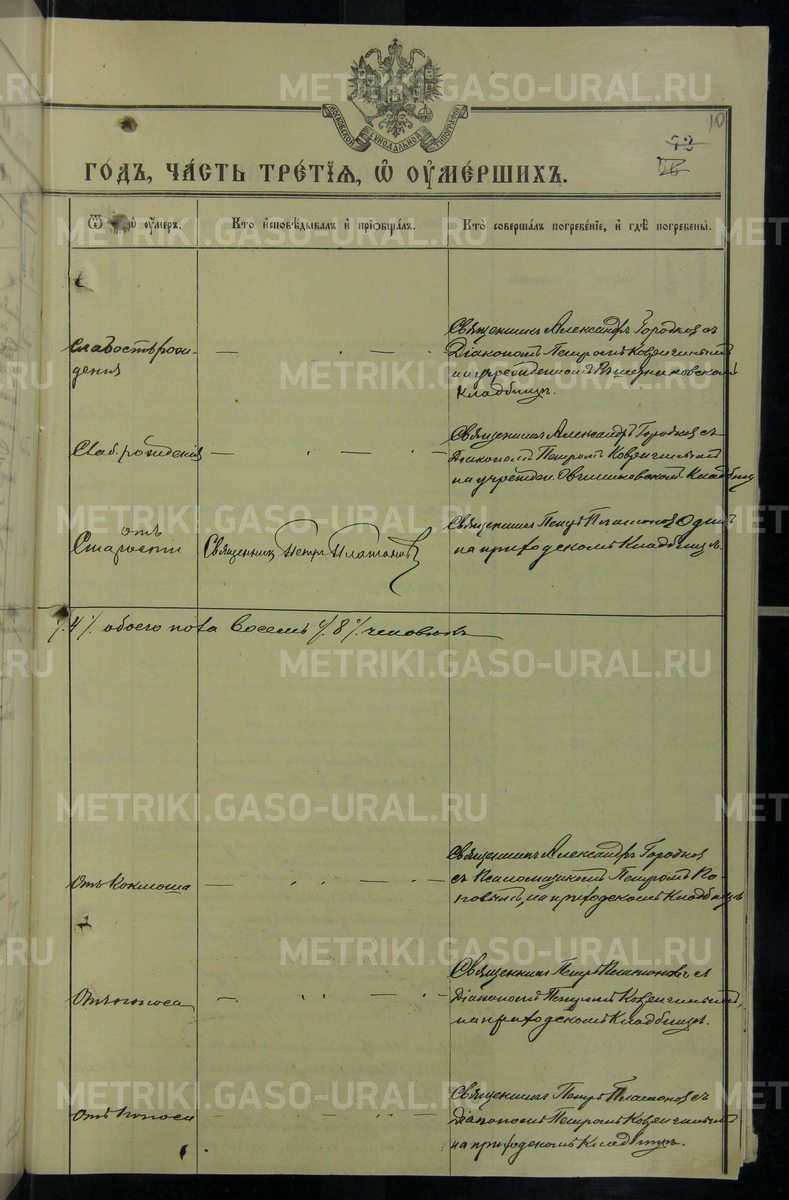 МОСКОВСКОЙ СѴНОДАЛЬНОЙ ТИПОГРАФІИ
10
72
ГОДЪ, ЧАСТЬ ТРЕТІЯ, Ѿ ОУМЕРШИХЪ.
Ѿ оумеръ.
Кто исповѣдывалъ и пріобщалъ.
Кто совершалъ погребеніе, и гдѣ погребены.
Слабость рож-
денія
Священникъ Александръ Городковъ съ
Діакономъ Петромъ
на учрежденномъ
кладбищѣ.
Слаб. рожденія
Священникъ Александръ Городковъ съ
Діакономъ Петромъ
на учрежден. Овчинниковском кладбищ
отъ
Старости
Священникъ Петръ Платоновъ
Священникъ Петръ Платоновъ Одинъ
на приходскомъ кладбищѣ.
4 обоего пола восемь 8 человѣкъ
Отъ Коклюша
Священникъ Александръ Городков
съ Псаломщикомъ Петромъ По-
повымъ, на приходскомъ кладбищѣ
Отъ поноса
Священникъ Петръ Платоновъ съ
Діакономъ Петромъ
на приходскомъ кладбищѣ.
Отъ поноса
Священникъ Петръ Платоновъ съ
Діакономъ Петромъ
на приходскомъ кладбищѣ.
METRIKI.GASO-URAL.RU